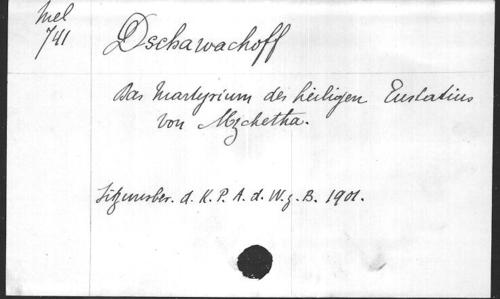 Mel
741
Dschawachoff
Das Martyrium des heiligen Eustatius
von Mzchetha.
Sitzunsber. d. K. P. A. d. W. z. B. 1901.